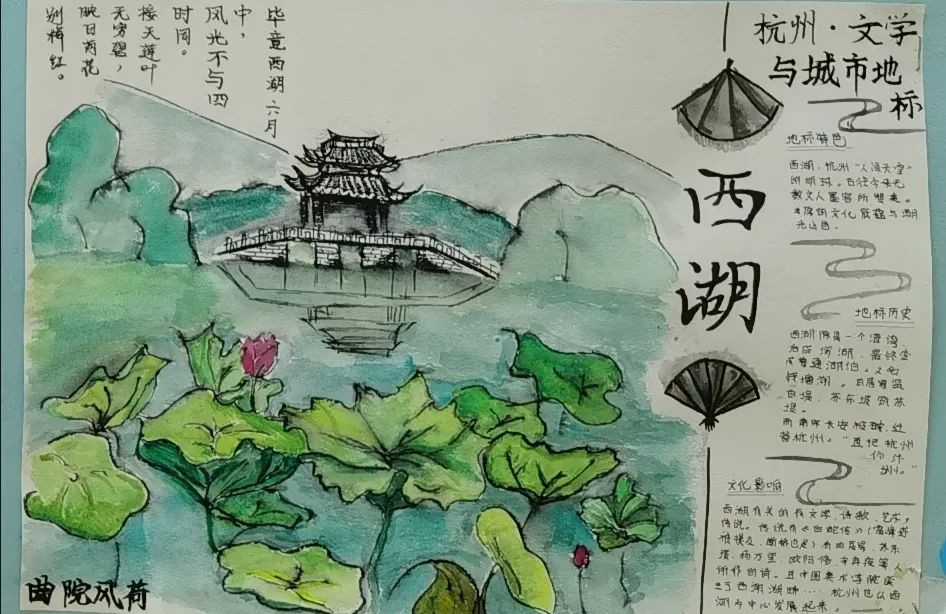 毕竟西湖六月
中，
风光不与四
时同。
接天莲叶
无穷碧，
映日荷花
别样红。
杭州·文学
与城市地
标
西湖
地标特色
西湖，杭州“人间天堂”
的明珠。自往今来无
数文人墨客所赞美。
光山色。
地标历史
西湖原是一个潟湾，
普通湖泊。又名
钱塘湖。白居易筑
白堤，苏东坡筑苏
堤。
“直把杭州
作汴
州。”
文化影响
西湖有关的有文学、诗歌、艺术，
传说。传说有《白蛇传》
白居易、苏东
坡、杨万里、欧阳修、辛弃疾等人
所作的诗。且中国美术学院诞
生于西湖湖畔……杭州也以西
湖为中心发展起来。
曲院风荷